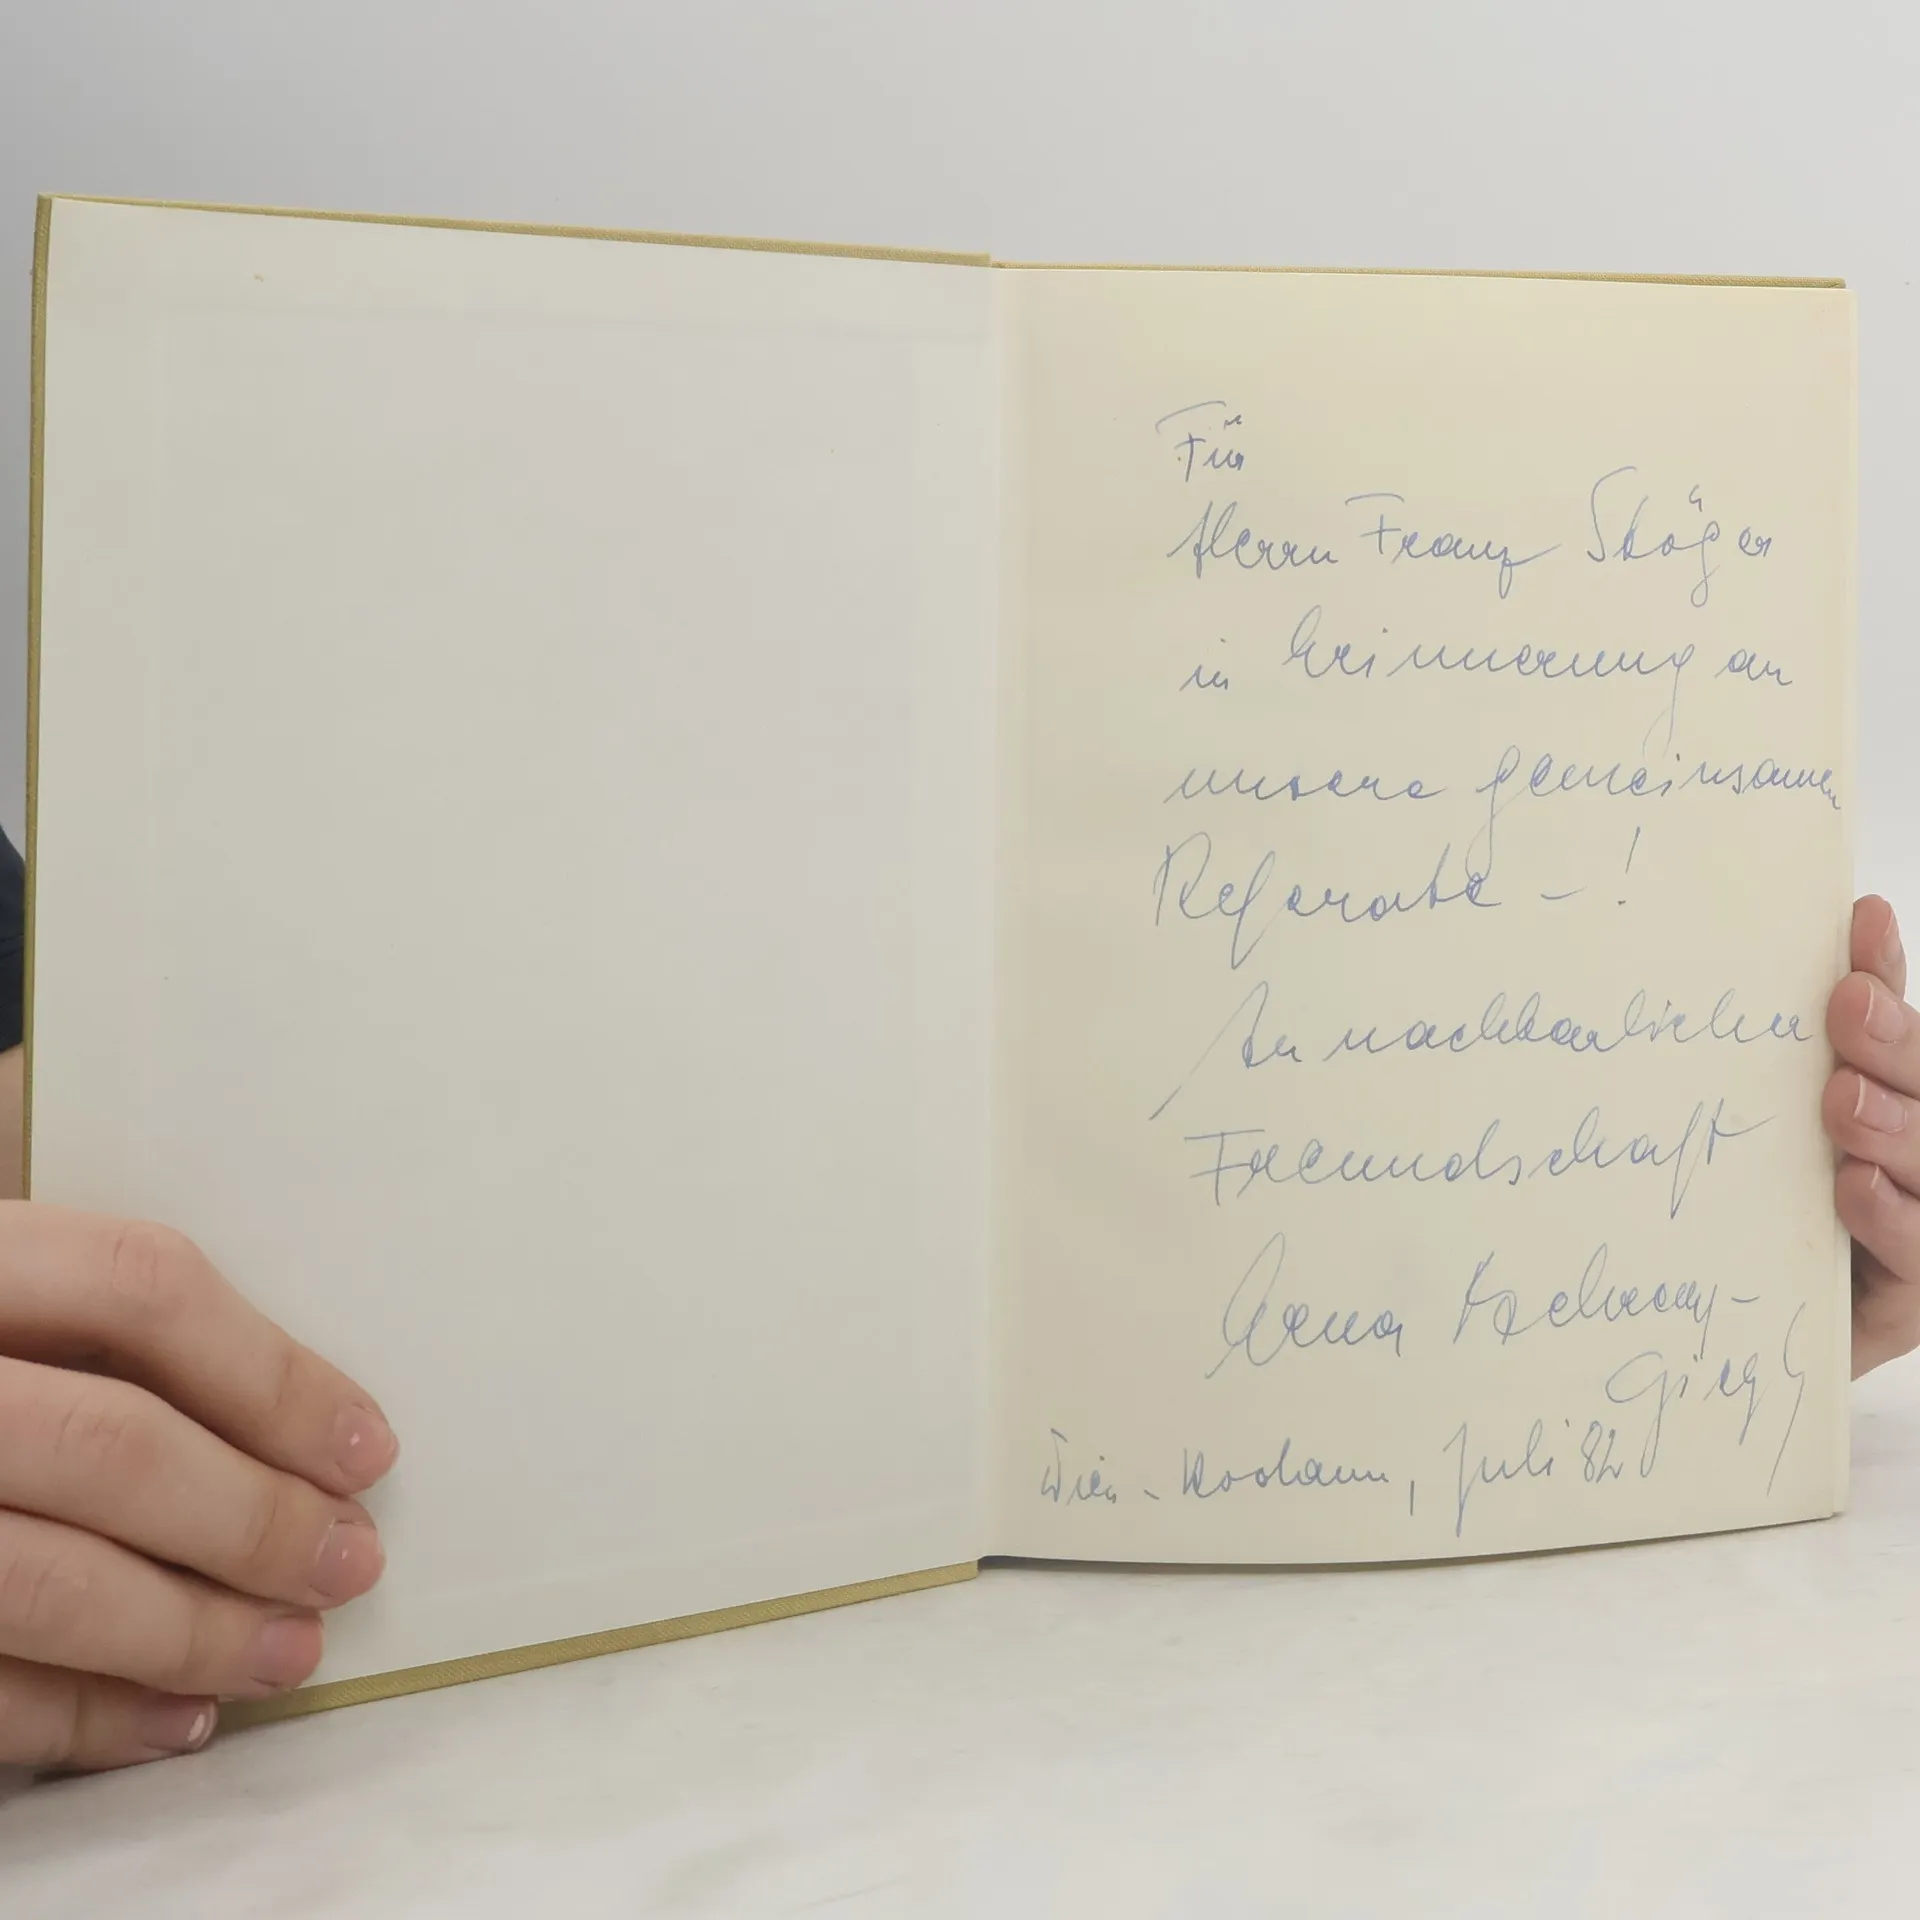 Für
Herrn Franz Stöger
in Erinnerung an
unsere gemeinsamen
Referate - !
In nachbarlicher
Freundschaft
Erna
Wien - Rodaun, Juli 82